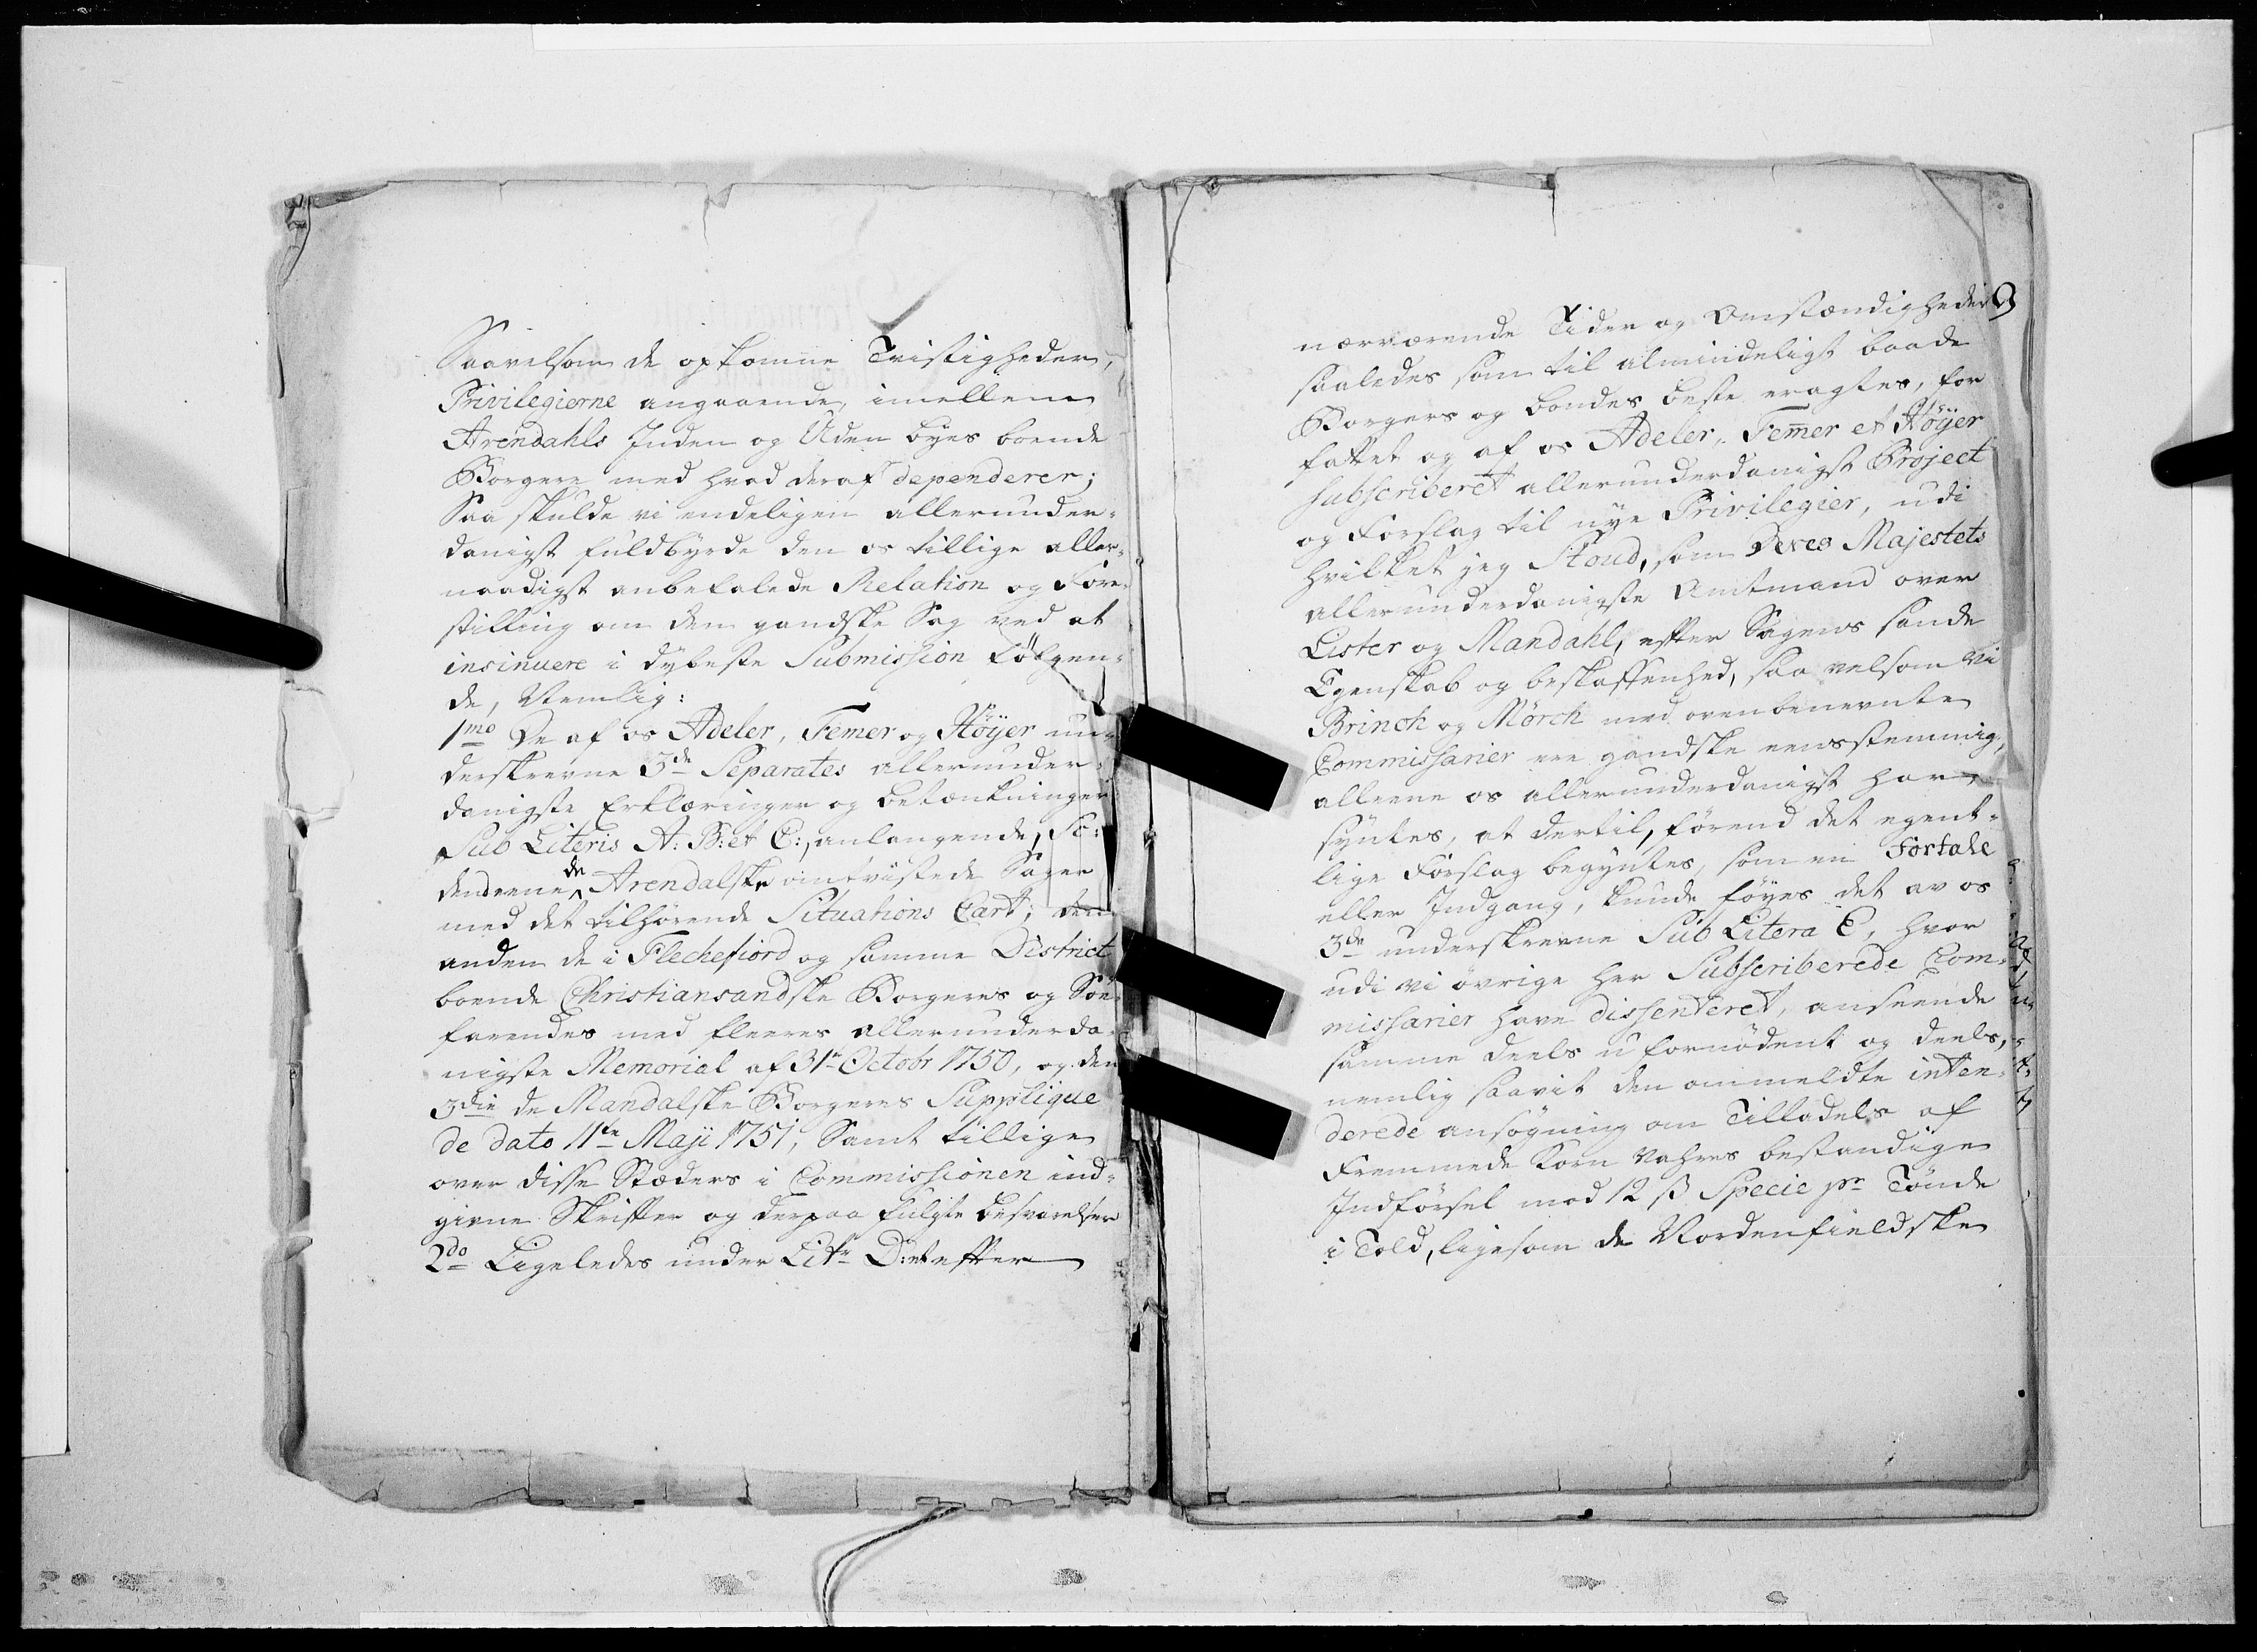 Saavelsom de opkomne Tvistigheder,
Privilegierne angaaende, imellem
Arendahls Inden og Uden byes boende
Borgere med hvad deraf dependerer;
Saa skulde vi endeligen allerunder-
danigst fuldbyrde den os tillige aller-
naadigst anbefalede Relation og Fore-
stilling om den gandske Sag ved at
insinuere i dybeste Submission følgen-
de, Nemlig:
1mo De af os Adeler, Femer og Höÿer un-
derskrevne 3de Separates allerunder-
danigste Erklæringer og betænkninger
Sub Literis A: B: et C:, anlangende,
de Arendalske omtvistede Sager
med det tilhørende Situations Cart; den
anden de i Flechefiord og samme District
boende Christiansandske Borgeres og Søe-
farendes med fleeres allerunderda-
nigste Memorial af 31te Octobr 1750, og den
3die de Mandalske Borgeres Supplique
de dato 11te Maji 1751, Samt tillige
over disse Stæders i Commissionen ind-
givne Skrifter og derpaa fulgte besvarelser
2do Ligeledes under Litr D: et efter
nærværende Tider og Omstændigheder
saaledes som til almindeligt baade
Borgers og bondes beste eragtes, for
fattet og af os Adeler, Femer et Höÿer
subscriberet allerunderdanigst Project
og Forslag til nye Privilegier, udi
hvilket jeg Stoud, som Deres Majestets
allerunderdanigste Amtmand over
Lister og Mandahl, efter Sagens sande
Egenskab og beskaffenhed, saa velsom Vi
Brinch og Mörch med ovenbenevnte
Commissarier ere gandske eensstemmig,
alleene os allerunderdanigst har
syntes, at dertil, førend det egent-
lige Forslag begyntes, som en Fortale
eller Indgang, kunde føyes det av os
3de underskrevne Sub Litera E, hvor
udi vi øvrige her Subscriberede Com-
missarier have dissenteret, anseende
samme deels ufornødent og deels,
nemlig saavit den ommeldte inten-
derede ansøgning om Tilladelse af
Fremmede Korn Vahres bestandige
Indførsel mod 12 ß Specie pr Tønde
i Told, ligesom de Nordenfieldske